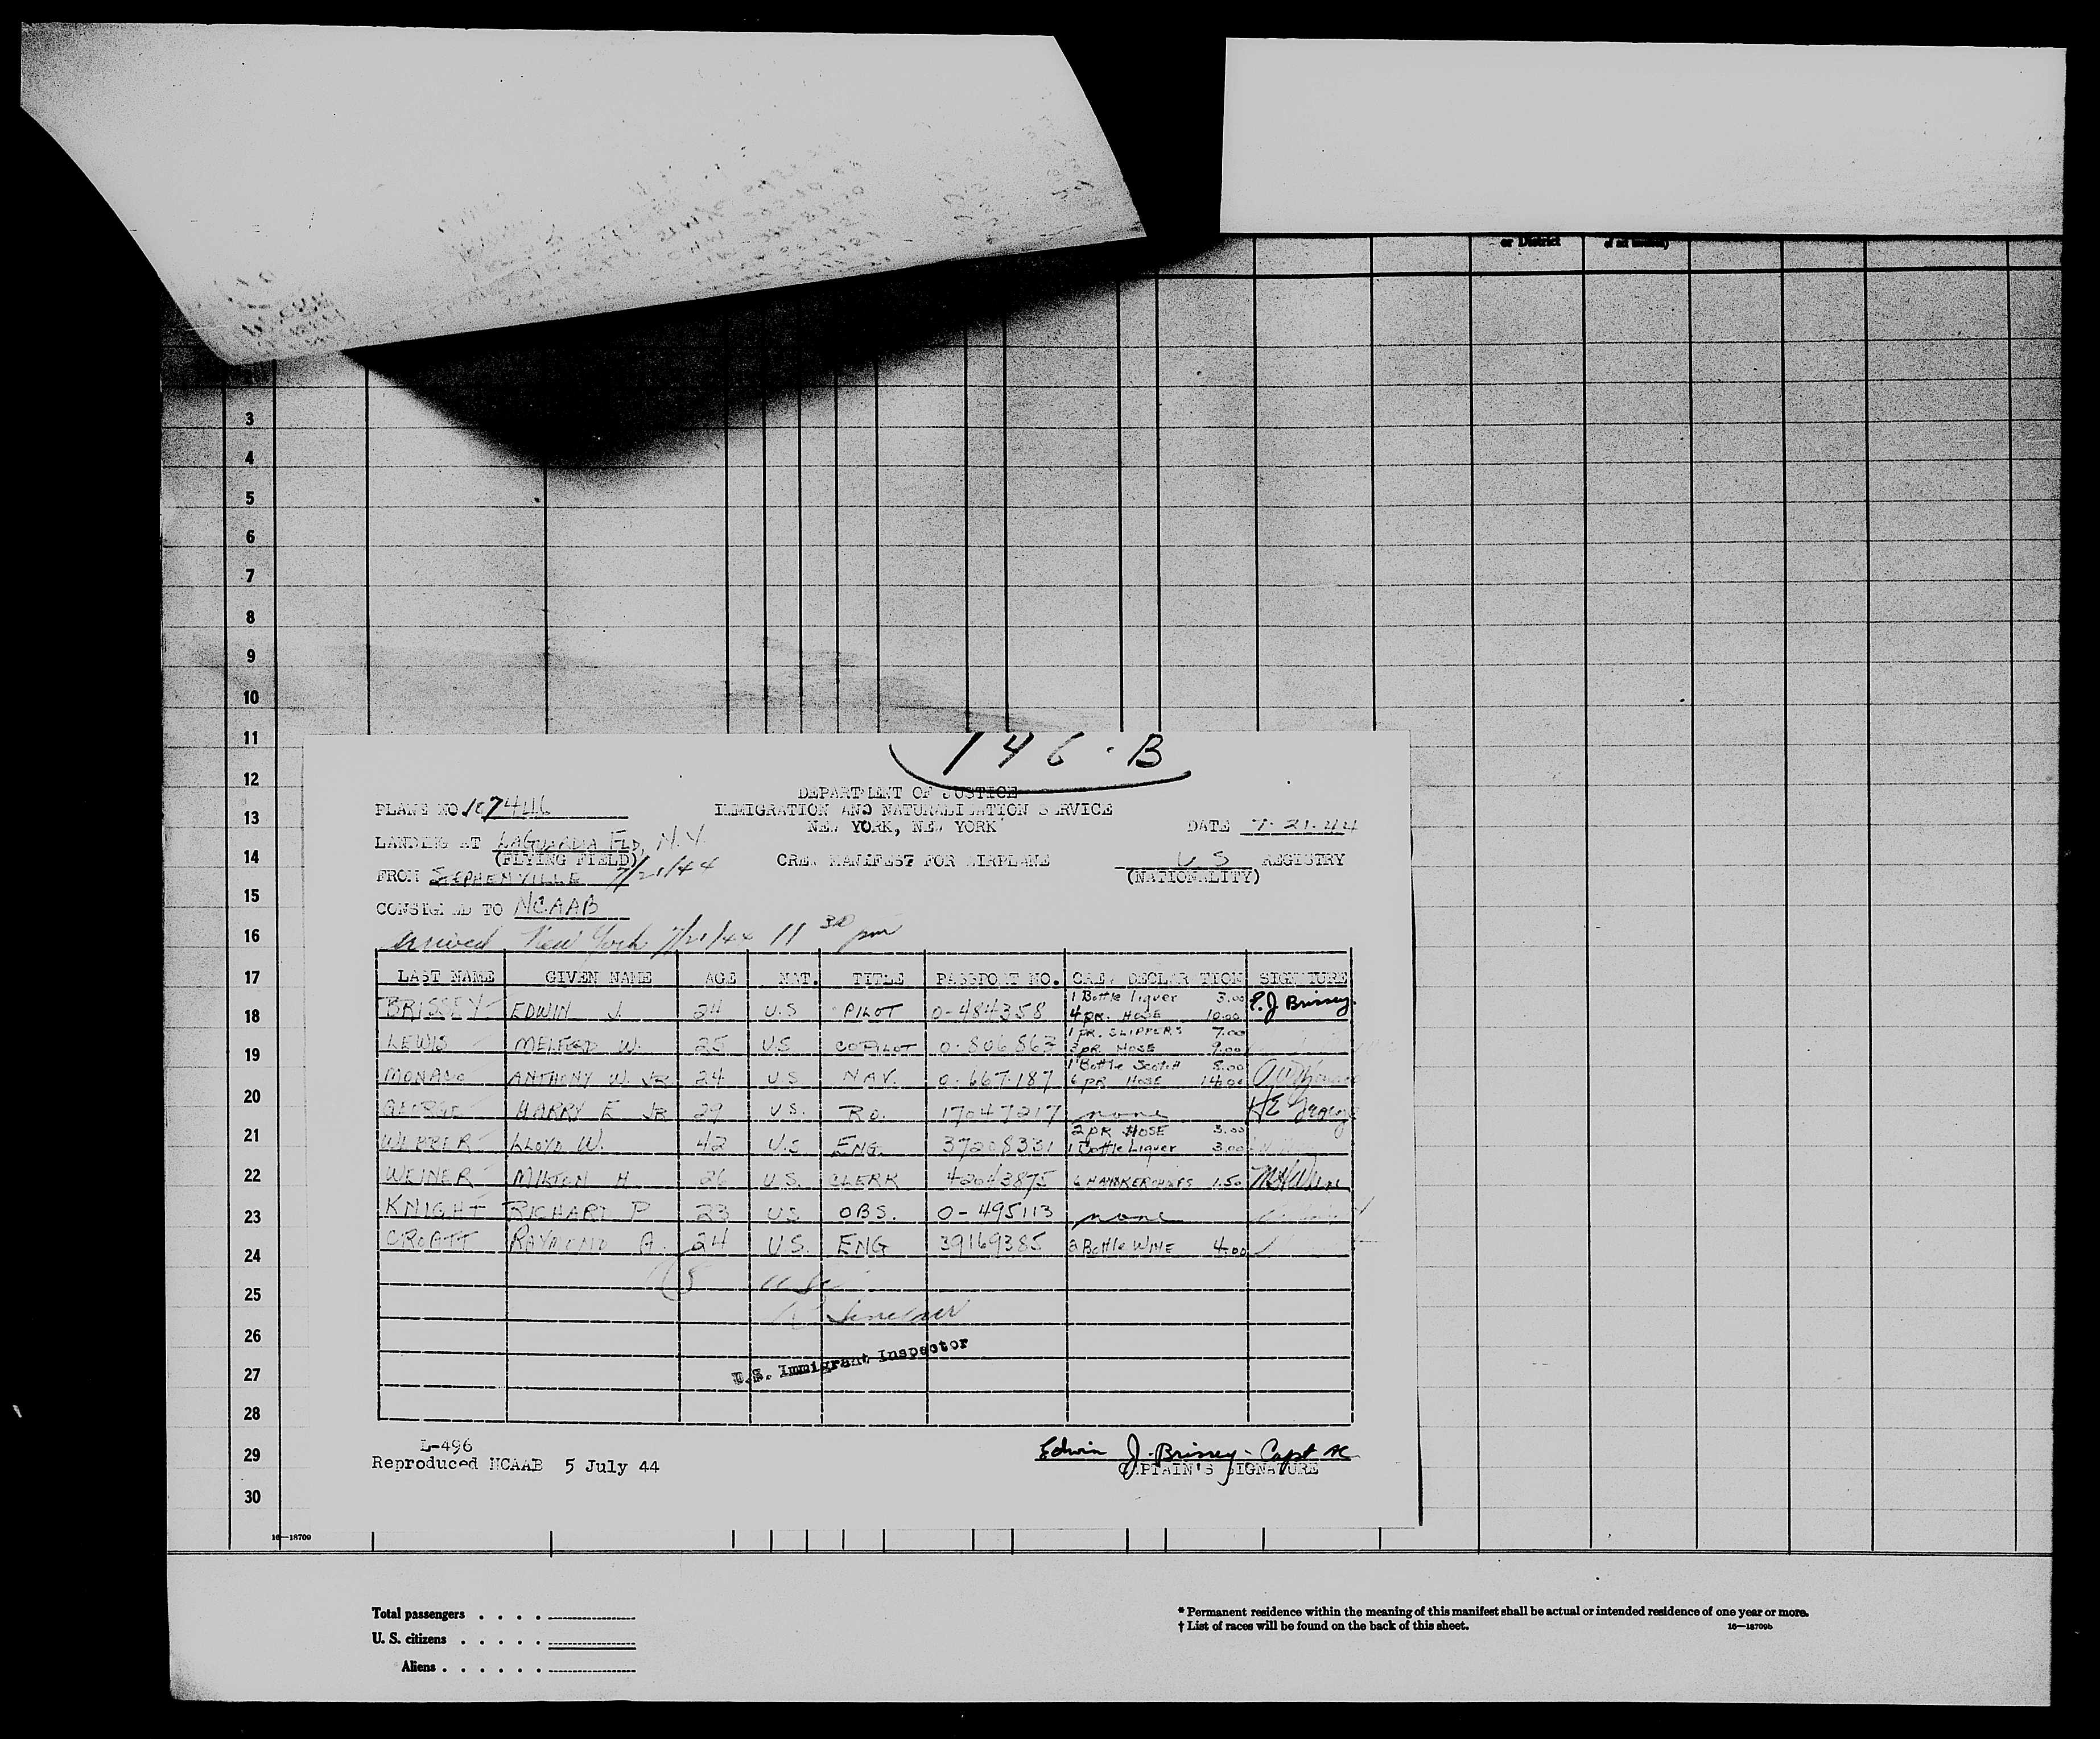 or District
3
4
5
6
7
8
9
10
11
12
13
14
15
16
17
18
19
20
21
22
23
24
25
26
27
28
29
30
146-B
DEPARTMENT OF JUSTICE
PLANE NO 107446 IMMIGRATION AND NATURALIZATION SERVICE
NEW YORK, NEW YORK DATE 7-21-44
LANDING AT LAGUARDIA FLD, N.Y.
(FLYING FIELD) CREW MANIFEST FOR AIRPLANE U S REGISTRY
FROM STEPHENVILLE 7/21/44 (NATIONALITY)
CONSIGNED TO NCAAB
Arrived New York 7/21/44 11 30 pm
LAST NAME GIVEN NAME AGE NAT. TITLE PASSPORT NO. CREW DECLARATION SIGNATURE
BRISSEY EDWIN J. 24 U.S PILOT 0-484358 1 Bottle liquer 3.00 E.J. Brissey
4 PR. HOSE 10.00
LEWIS W. 25 U.S COPILOT 0-806863 1 PR. SLIPPERS 7.00
3 PR HOSE 9.00
ANTHONY W. JR 24 U S NAV. 0-667187 1 Bottle Scotch 8.00
6 PR HOSE 14.00
GEORGE HARRY E JR 29 U.S. RO. 17047217 none HE George
LLOYD W. 42 U.S ENG. 37208331 2 PR HOSE 3.00
1 Bottle Liquer 3.00
WEINER MILTON H 26 U.S. CLERK 42043875 6 HANKERCHIFS 1.50 MHWeiner
KNIGHT RICHARD P 23 US OBS. 0-495113 none
CROATT RAYMOND A. 24 U.S. ENG 39169385 2 Bottle WINE 4.00
Sinclair
U.S. Immigrant Inspector
L-496
Reproduced NCAAB 5 July 44
Edwin J. Brissey - Capt AC
CAPTAIN'S SIGNATURE
16—18709
Total passengers . . . .
U. S. citizens . . . . .
Aliens . . . . . .
* Permanent residence within the meaning of this manifest shall be actual or intended residence of one year or more.
† List of races will be found on the back of this sheet. 16—18709b